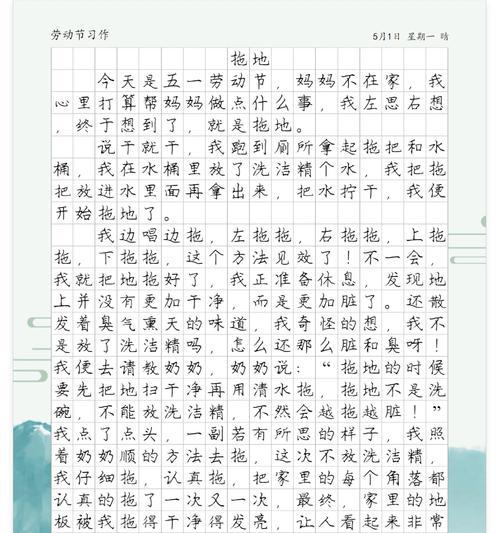 劳动节习作
5月1日 星期一 晴
拖地
今天是五一劳动节，妈妈不在家，我
心里打算帮妈妈做点什么事，我左思右想
，终于想到了，就是拖地。
说干就干，我跑到厕所拿起拖把和水
桶，我在水桶里放了洗洁精个水，我把拖
把放进水里面再拿出来，把水拧干，我便
开始拖地了。
我边唱边拖，左拖拖，右拖拖，上拖
拖，下拖拖，这个方法见效了！不一会，
我就把地拖好了，我正准备休息，发现地
上并没有更加干净，而是更加脏了。还散
发着臭气熏天的味道，我奇怪的想，我不
是放了洗洁精吗，怎么还那么脏和臭呀！
我便去请教奶奶，奶奶说：“拖地的时候
要先把地扫干净再用清水拖，拖地不是洗
碗，不能放洗洁精，不然会越拖越脏！”
我点了点头，一副若有所思的样子，我照
着奶奶顺的方法去拖，这次不放洗洁精，
我仔细拖，认真拖，把家里的每个角落都
认真的拖了一次又一次，最终，家里的地
板被我拖得干净得发亮，让人看起来非常